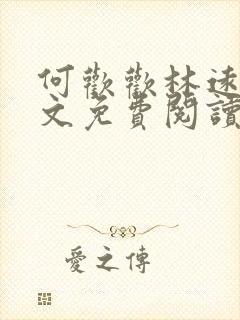 何歡歡林遠
文免費閱讀
愛之傳